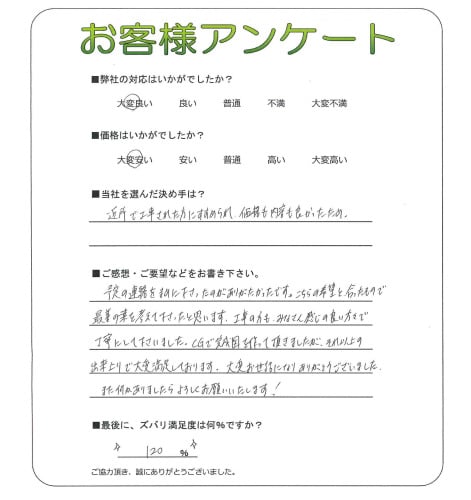 お客様アンケート
■弊社の対応はいかがでしたか？
大変良い 良い 普通 不満 大変不満
■価格はいかがでしたか？
大変安い 安い 普通 高い 大変高い
■当社を選んだ決め手は？
近所で工事された方にすすめられ、価格も内容も良かったため。
■ご感想・ご要望などをお書き下さい。
予定の連絡をまめに下さったのがありがたかったです。こちらの希望と合ったもので
最善の案を考えて下さったと思います。工事の方も、みなさん感じの良い方々で
丁寧にして下さいました。CGで完成図を作って頂きましたが、それ以上の
出来上りで大変満足しております。大変お世話になりありがとうございました。
また何かありましたらよろしくお願いいたします！
■最後に、ズバリ満足度は何%ですか？
120 %
ご協力頂き、誠にありがとうございました。